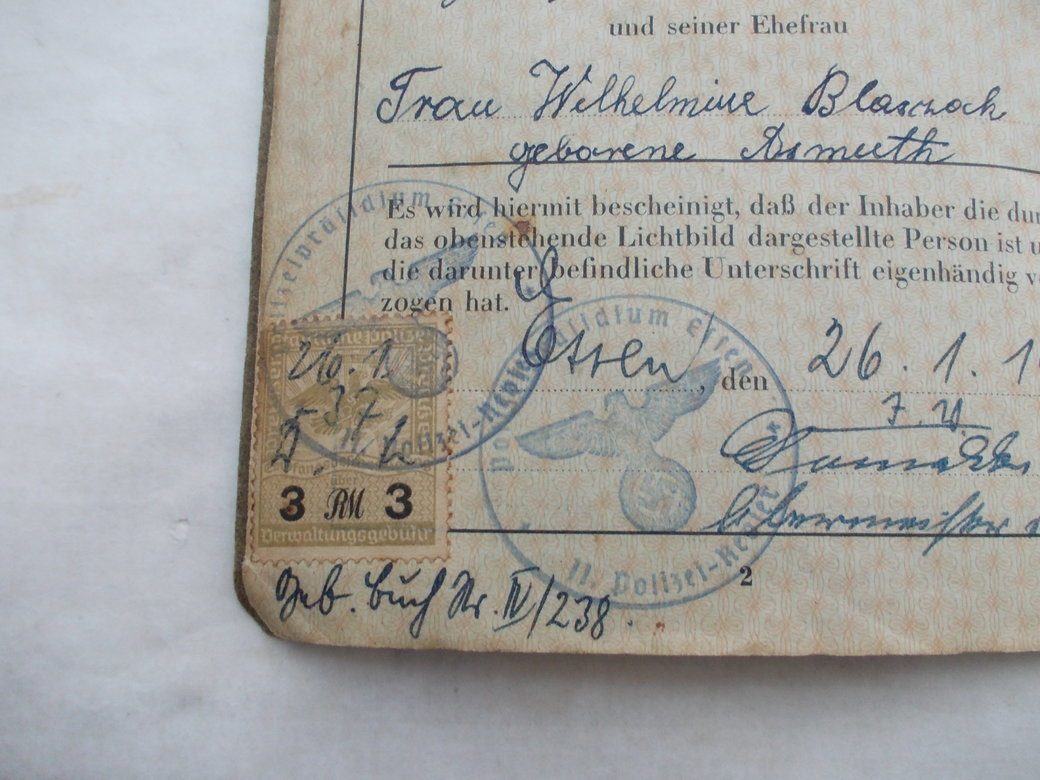 und seiner Ehefrau
Frau Wilhelmine Blasczak
geborene Asmuth
Es wird hiermit bescheinigt, daß der Inhaber die du
das obenstehende Lichtbild dargestellte Person ist u
die darunter befindliche Unterschrift eigenhändig v
zogen hat.
Essen, den 26.1.1
Polizeipräsidium Essen
Polizei-Revier
Polizeipräsidium Essen
11. Polizei-Revier
26.1.
37
über
3 RM 3
Verwaltungsgebühr
2
Geb. Buch Nr. IV/238.